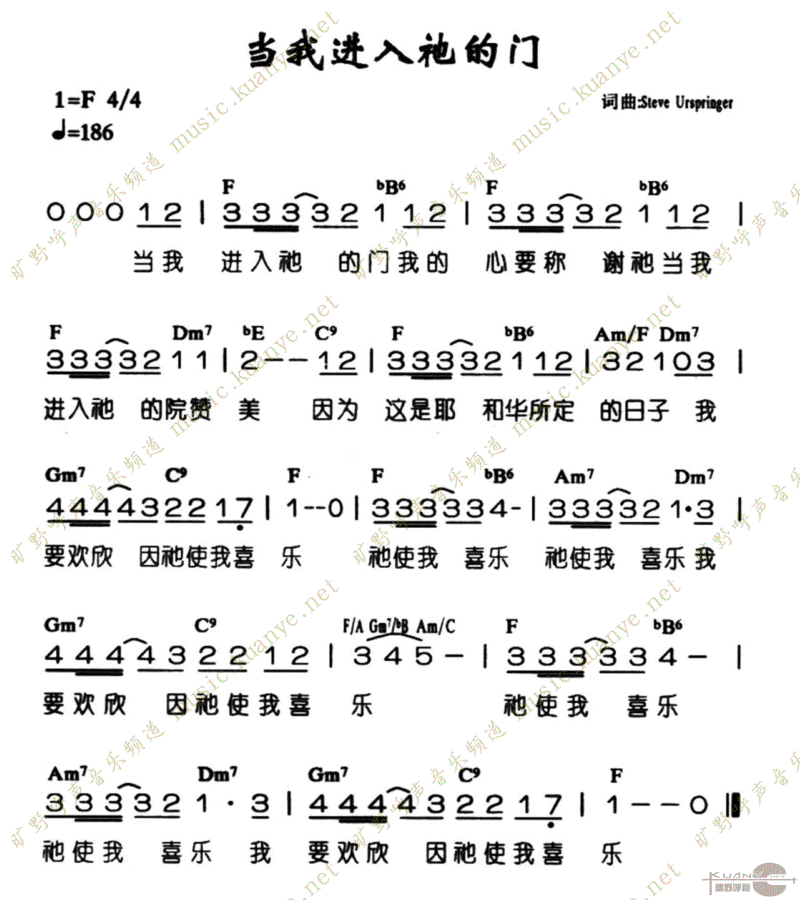 当我进入祂的门
1=F 4/4
♩=186
词曲:Steve Urspringer
F ♭B6 F ♭B6
0 0 0 1 2 | 3 3 3 3 3 2 1 1 2 | 3 3 3 3 3 2 1 1 2 |
当我 进入祂 的门我的 心要称 谢祂当我
F Dm7 ♭E C9 F ♭B6 Am/F Dm7
3 3 3 3 3 2 1 1 | 2 - - 1 2 | 3 3 3 3 3 2 1 1 2 | 3 2 1 0 3 |
进入祂 的院赞 美 因为 这是耶 和华所定 的日子 我
Gm7 C9 F F ♭B6 Am7 Dm7
4 4 4 4 4 3 2 2 1 7 | 1 - - 0 | 3 3 3 3 3 3 4 - | 3 3 3 3 3 2 1 · 3 |
要欢欣 因祂使我喜 乐 祂使我 喜乐 祂使我 喜乐我
Gm7 C9 F/A Gm7/♭B Am/C F ♭B6
4 4 4 4 4 3 2 2 1 2 | 3 4 5 - | 3 3 3 3 3 3 4 - |
要欢欣 因祂使我喜 乐 祂使我 喜乐
Am7 Dm7 Gm7 C9 F
3 3 3 3 3 2 1 · 3 | 4 4 4 4 4 3 2 2 1 7 | 1 - - 0 ‖
祂使我 喜乐 我 要欢欣 因祂使我喜 乐
旷野呼声音乐频道 music.kuanye.net